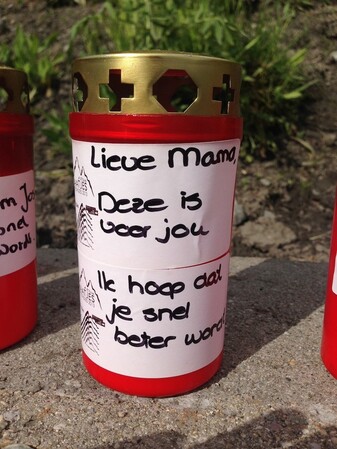 Lieve Mama,
Deze is
voor jou
Ik hoop dat
je snel
beter word
m Jo
snel
wordt